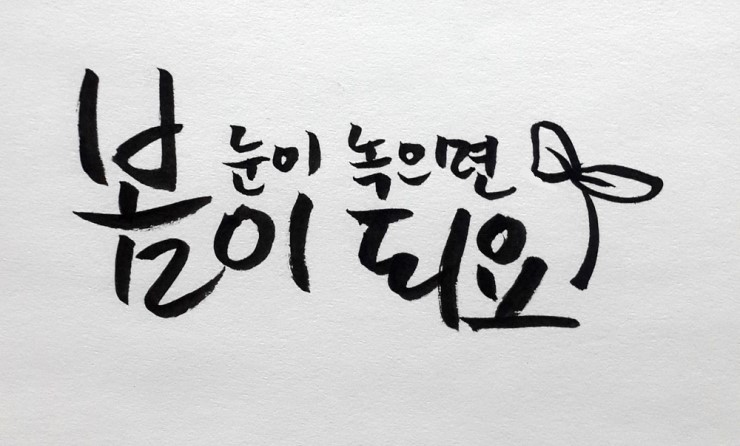 눈이 녹으면
봄이 되요